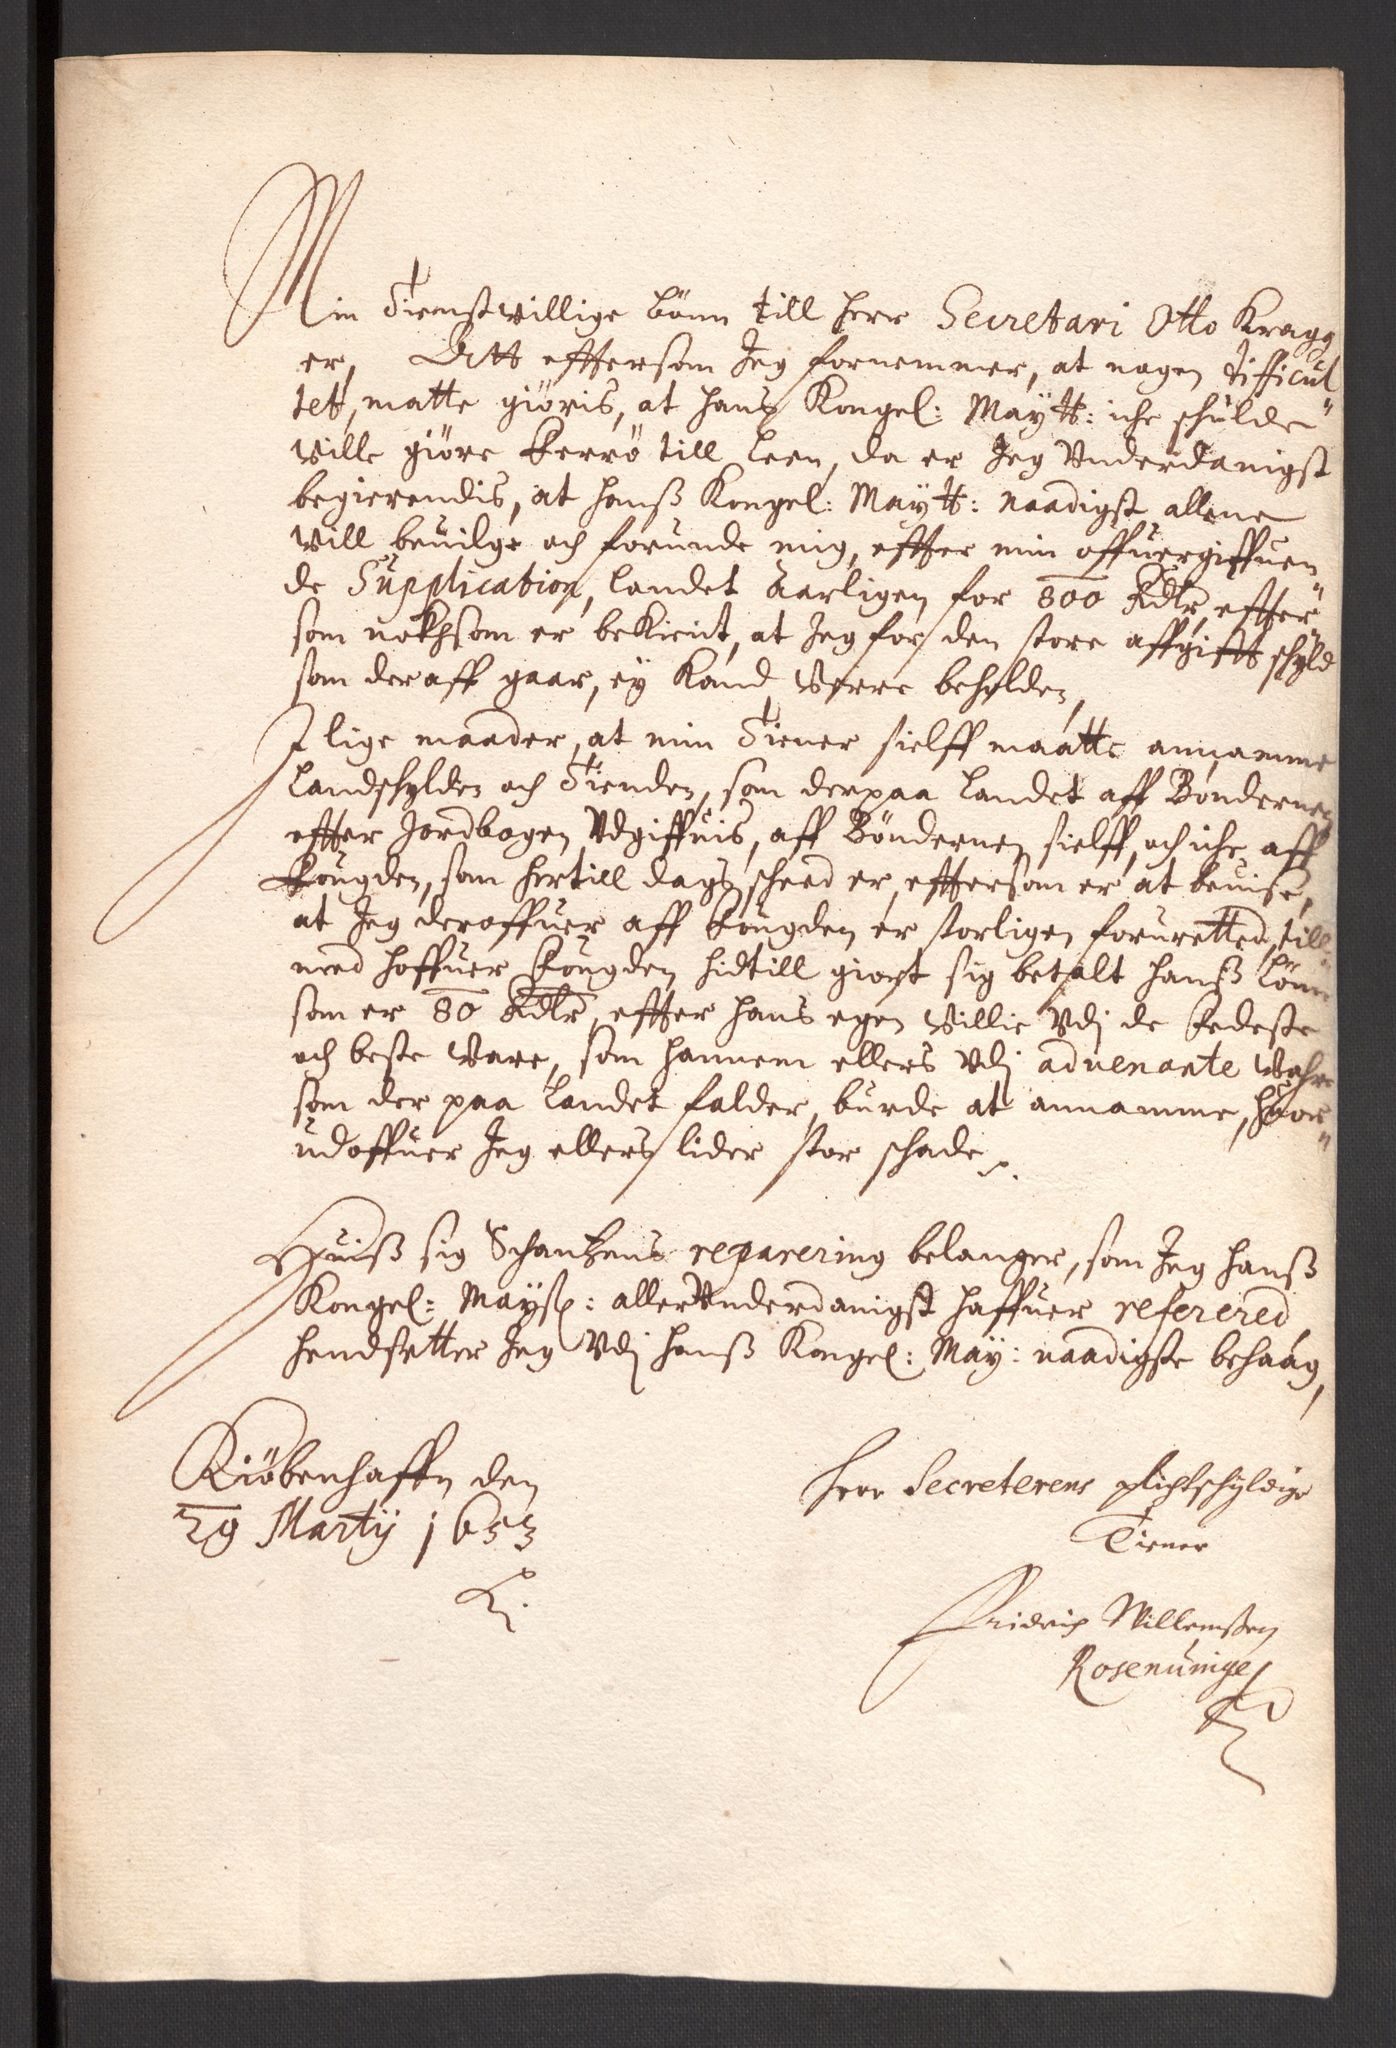 Min Tienstvillige bönn till Herr Secretari Otto Kragg
er, Att effttersom Jeg fornemmer, at nogen difficul
tet, matte giöris, at hans Kongel: Maytt: iche schulde
wille giöre Ferrö till leen, da er Jeg Vnderdanigst
begierendis, at hanß Kongel: Maytt: naadigst allene
will beuilge och forunde mig, effter min offuergiffuen
de Supplication, landet Aarligen for 800 Rdlr, effter
som nokhsom er beKient, at Jeg for den store affgifft schyld
som deraff gaar, ey Kand Verre beholden,
I lige maader, at min Tiener sielff maatte annamme
Landschylden och Tienden, som der paa Landet aff Bönderne
effter Jordbogen Vdgiffuis, aff Bönderne sielff, och iche aff
Fougden, som hertill dags scheed er, effttersom er at beuise,
at Jeg deroffuer aff Fougden er storligen foruretted, till
med haffuer Fougden hidtill giort sig betalt hanß Lönn
som er 80 Rdlr, effter hans egen Villie Vdj de Fedeste
och beste Vare, som hannem ellers Vdj aduenante Wahre
som der paa Landet falder, burde at annamme, huor
udoffuer Jeg ellers lider stor schade.
Huiß sig Schantzens reparering belanger, som Jeg hanß
Kongel: Mayst: allerVnderdanigst haffuer referered,
hendsetter Jeg Vdj hanß Kongel: May: naadigste behaag,
Kiöbenhaffn den
29 Martij 1653
Herr Secreterens plichtschyldige
Tiener
Fridrich Willemßen
Rosenuinge